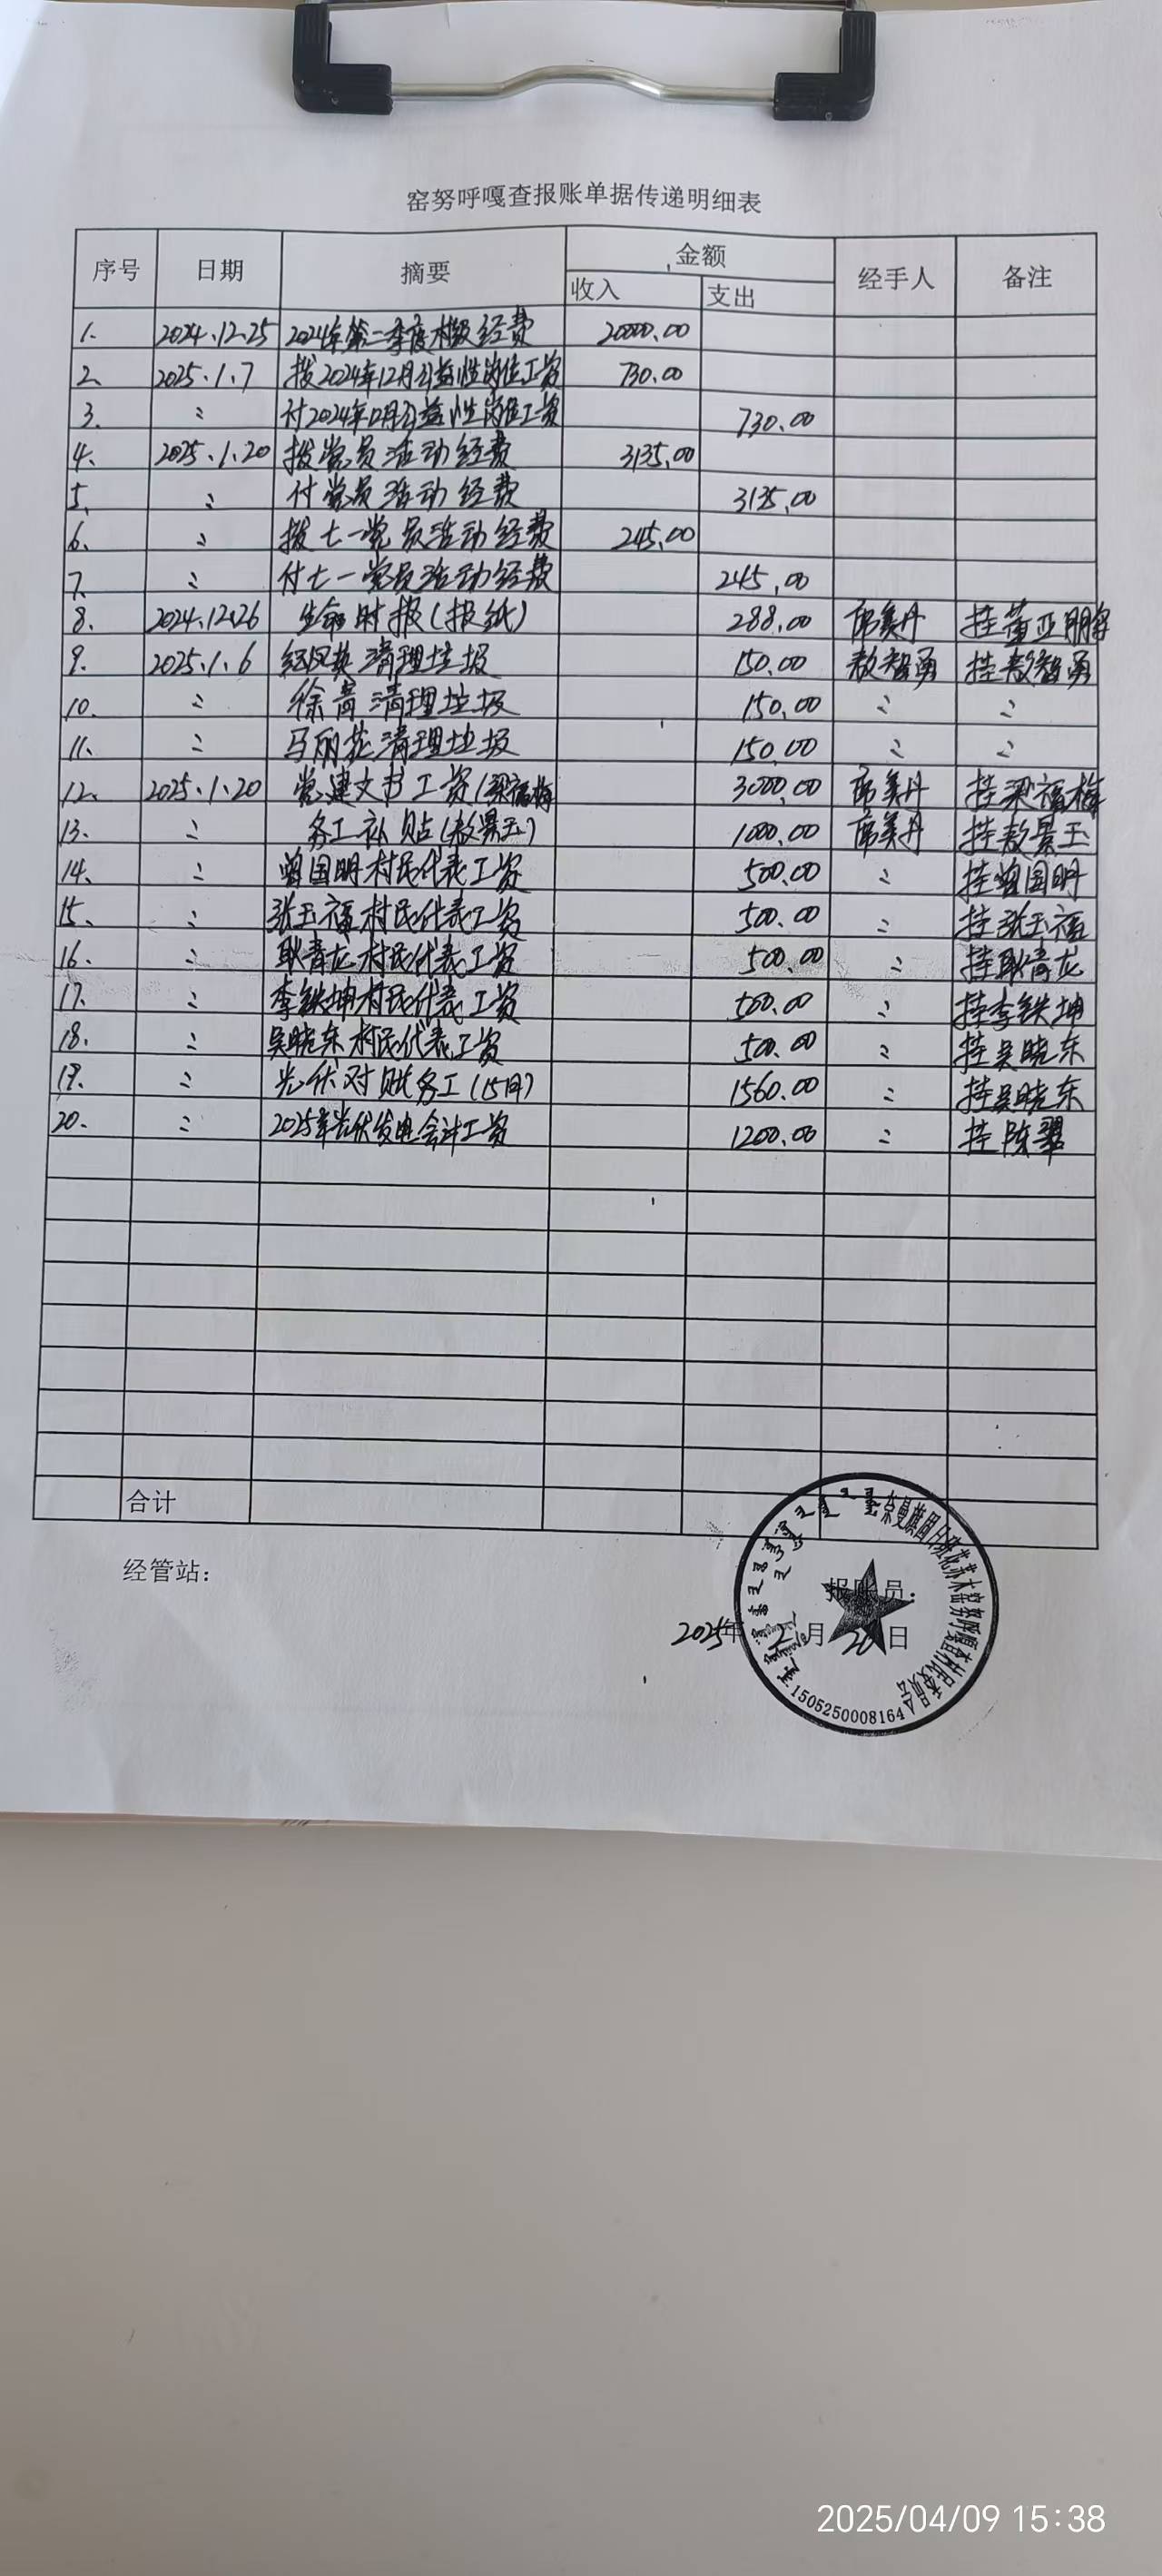 窑努呼嘎查报账单据传递明细表
序号 日期 摘要 金额 经手人 备注
收入 支出
1. 2024.12.25 2024年第二季度村级经费 20000.00
2. 2025.1.7 拨2024年12月公益性岗位工资 730.00
3. 〃 付2024年12月公益性岗位工资 730.00
4. 2025.1.20 拨党员活动经费 3135.00
5. 〃 付党员活动经费 3135.00
6. 〃 拨七一党员活动经费 245.00
7. 〃 付七一党员活动经费 245.00
8. 2024.12.26 生命时报(报纸) 288.00 席美丹 挂董亚朋
9. 2025.1.6 清理垃圾 150.00 敖智勇 挂敖智勇
10. 〃 徐青清理垃圾 150.00 〃 〃
11. 〃 马丽花清理垃圾 150.00 〃 〃
12. 2025.1.20 党建文书工资(梁福梅 3000.00 席美丹 挂梁福梅
13. 〃 务工补贴(敖景玉) 1000.00 席美丹 挂敖景玉
14. 〃 曾国明村民代表工资 500.00 〃 挂曾国明
15. 〃 张玉福村民代表工资 500.00 〃 挂张玉福
16. 〃 耿青龙村民代表工资 500.00 〃 挂耿青龙
17. 〃 李铁坤村民代表工资 500.00 〃 挂李铁坤
18. 〃 吴晓东村民代表工资 500.00 〃 挂吴晓东
19. 〃 光伏对账务工(15同) 1560.00 〃 挂吴晓东
20. 〃 2025年光伏发电会计工资 1200.00 〃 挂陈翠
合计
经管站: 报账员:
2025年2月20日
奈曼旗固日班花苏木窑努呼嘎查村民委员会
1505250008164
2025/04/09 15:38